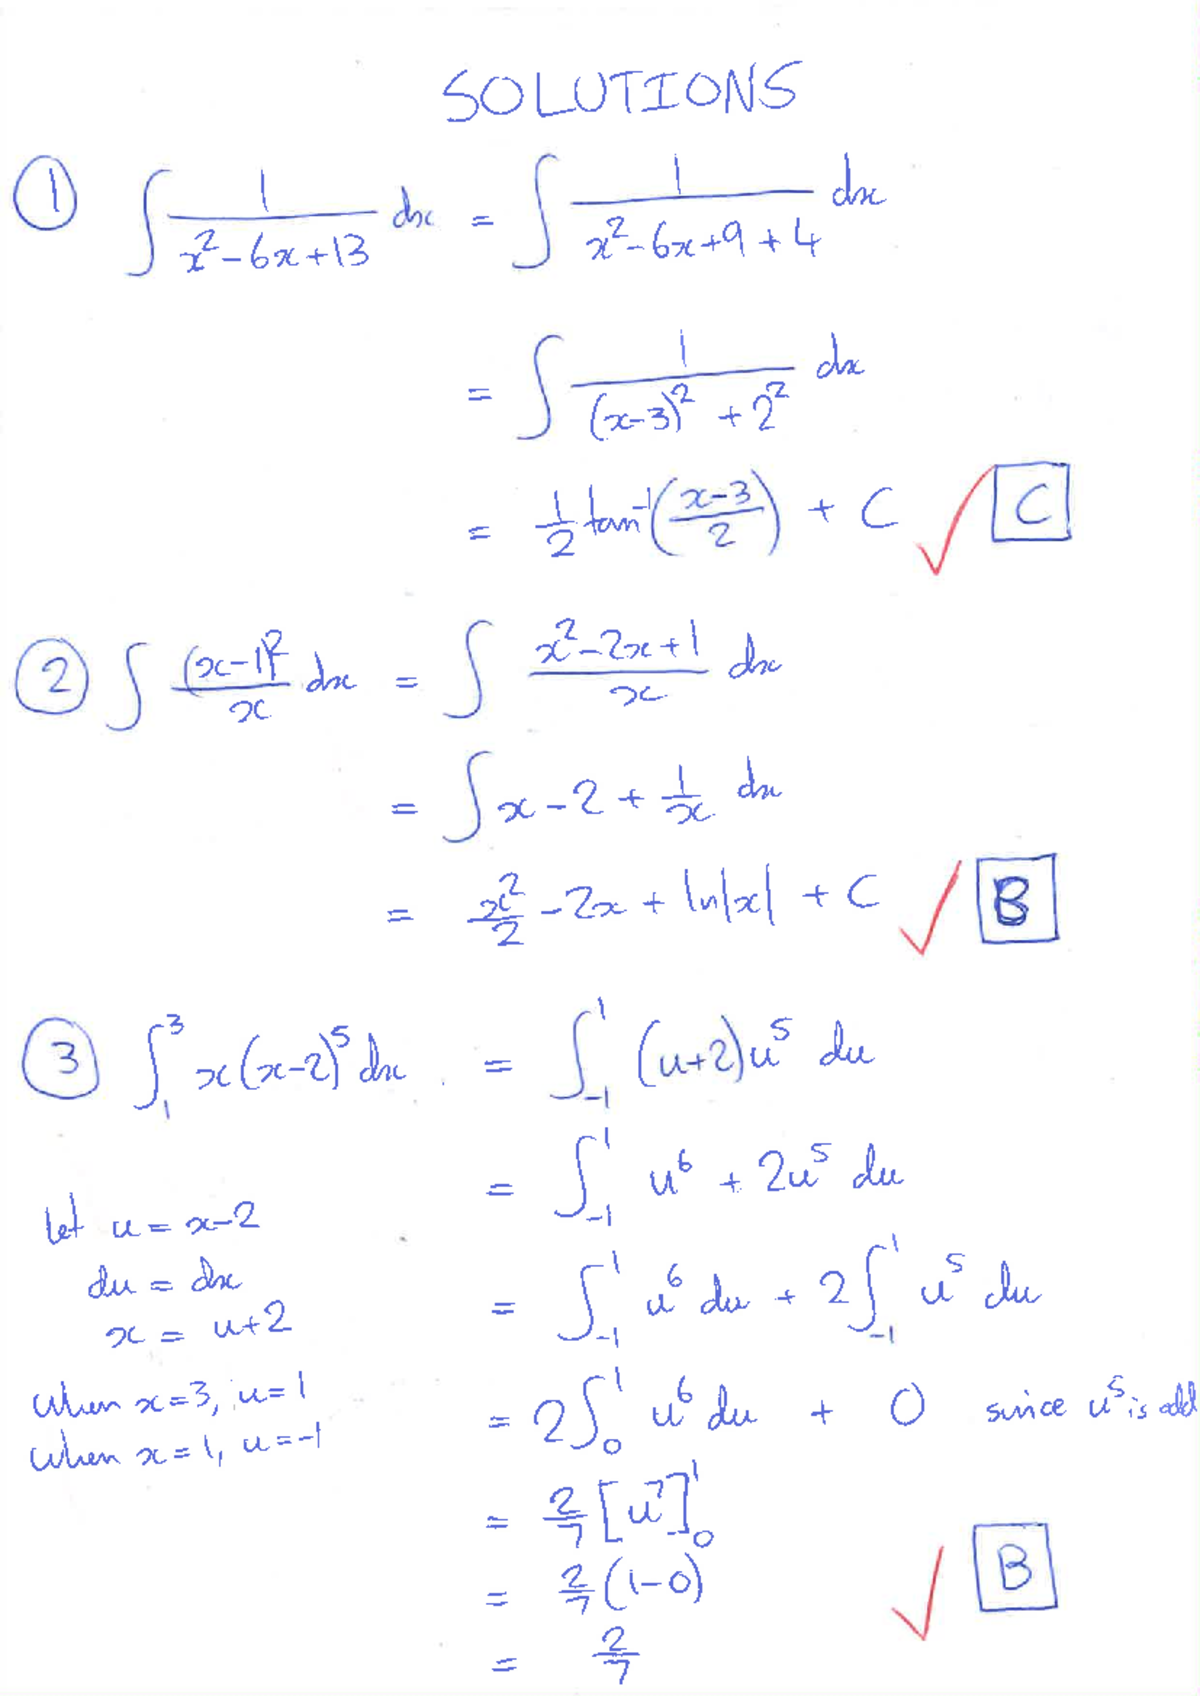 SOLUTIONS
① ∫ 1/(x²-6x+13) dx = ∫ 1/(x²-6x+9+4) dx
= ∫ 1/((x-3)²+2²) dx
= 1/2 tan⁻¹((x-3)/2) + C ✓ C
② ∫ (x-1)²/x dx = ∫ (x²-2x+1)/x dx
= ∫ x-2+1/x dx
= x²/2 -2x + ln|x| + C ✓ B
③ ∫₁³ x(x-2)⁵ dx = ∫₋₁¹ (u+2)u⁵ du
= ∫₋₁¹ u⁶ + 2u⁵ du
let u = x-2
du = dx
x = u+2
when x=3, u=1
when x=1, u=-1
= ∫₋₁¹ u⁶ du + 2∫₋₁¹ u⁵ du
= 2∫₀¹ u⁶ du + 0 since u⁵ is odd
= 2/7 [u⁷]₀¹
= 2/7 (1-0) ✓ B
= 2/7